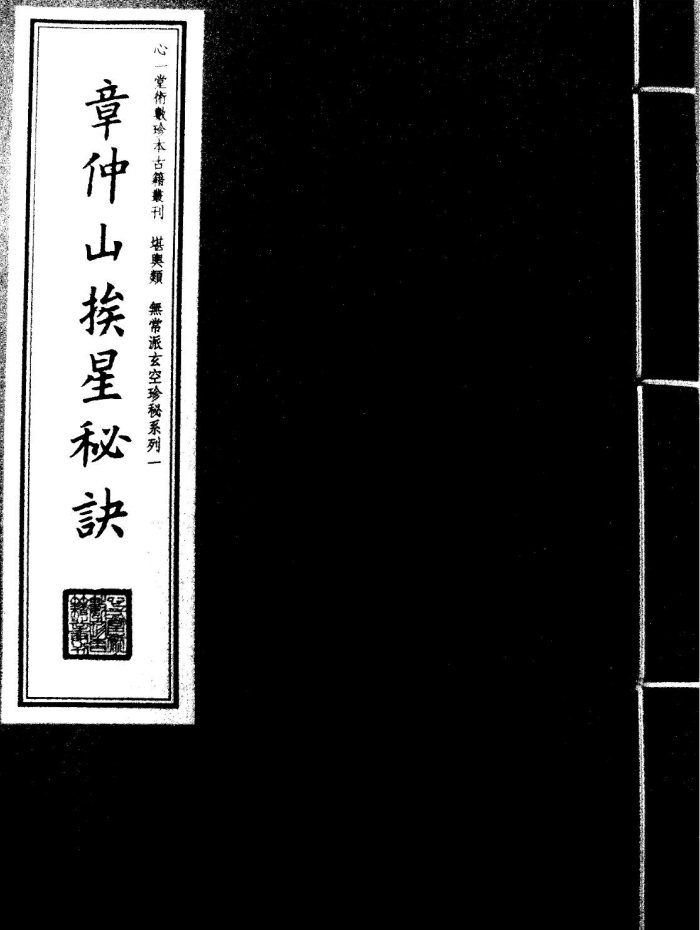 心一堂術數珍本古籍叢刊 堪輿類 無常派玄空珍秘系列一
章仲山挨星秘訣